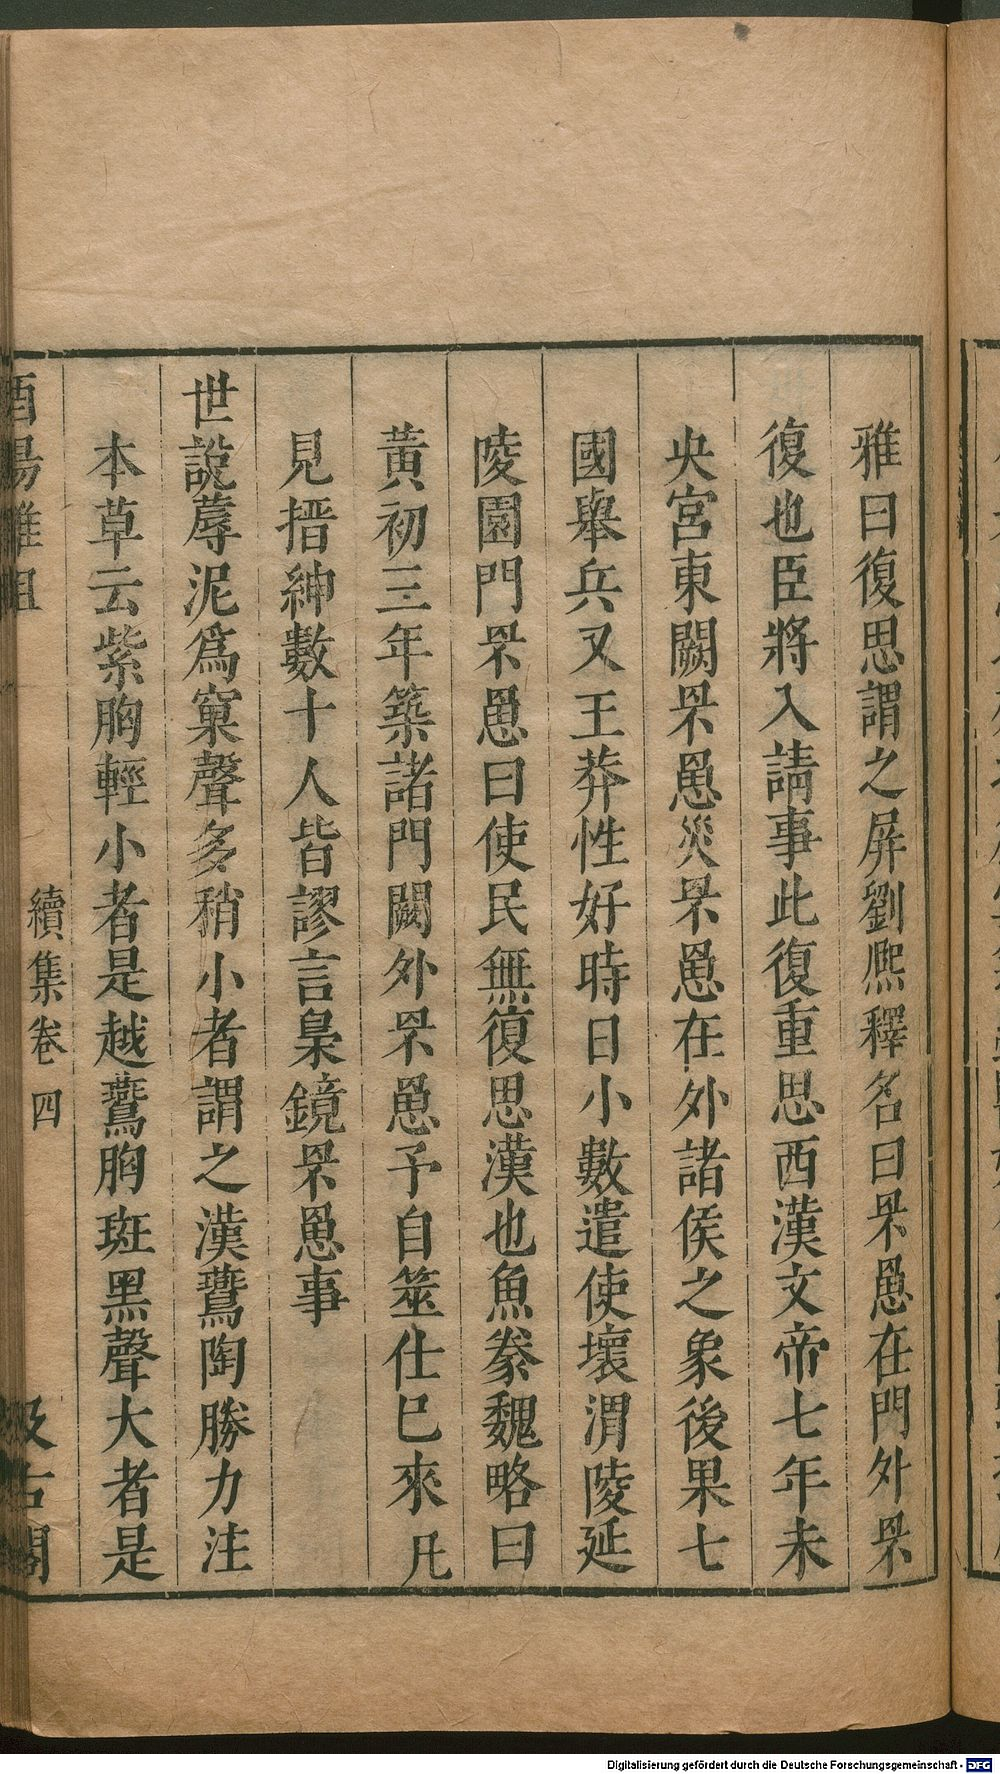 雅曰復思謂之屏劉熈釋名曰罘罳在門外罘
復也臣將入請事此復重思西漢文帝七年未
央宮東闕罘罳災罘罳在外諸侯之象後果七
國舉兵又王莽性好時日小數遣使壞渭陵延
陵園門罘罳曰使民無復思漢也魚豢魏略曰
黃初三年築諸門闕外罘罳予自筮仕巳來凡
見搢紳數十人皆謬言梟鏡罘罳事
世說蓐泥爲窠聲多稍小者謂之漢鷰陶勝力注
本草云紫胸輕小者是越鷰胸斑黑聲大者是
酉陽雜俎
續集卷四
汲古閣
Digitalisierung gefördert durch die Deutsche Forschungsgemeinschaft - DFG